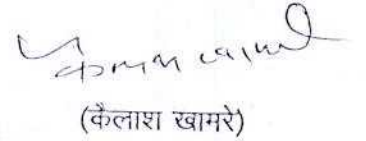 (कैलाश खामरे)